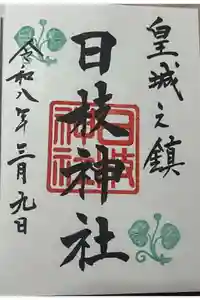 皇城之鎮
日枝神社
日枝神社
令和八年三月九日